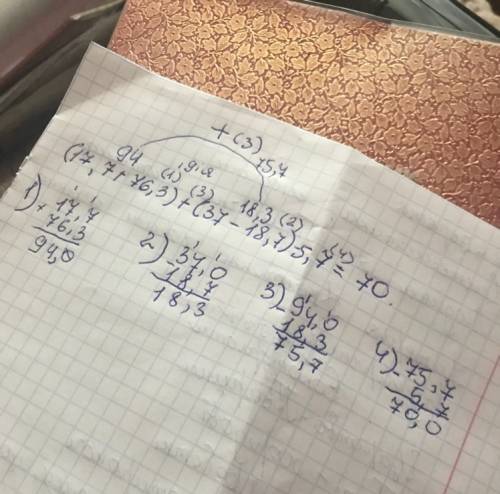 +(3)
94 15,7
(1) (3) 18,3 (2) (4)
(17,7+76,3)+(37-18,7)5,7= 70.
1) + 17,7
76,3
94,0
2) - 37,0
18,7
18,3
3) - 94,0
18,3
75,7
4) - 75,7
5,7
70,0